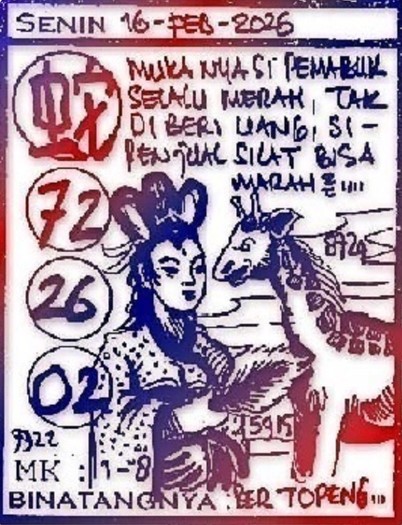 SENIN 16-FEB-2026
蛇
MUKANYA SI PEMABUK
SELALU MERAH, TAK
DI BERI UANG, SI-
PENJUAL SILAT BISA
MARAH
72
8724
26
02
5915
MK : 1-8
BINATANGNYA : BER TOPENG...